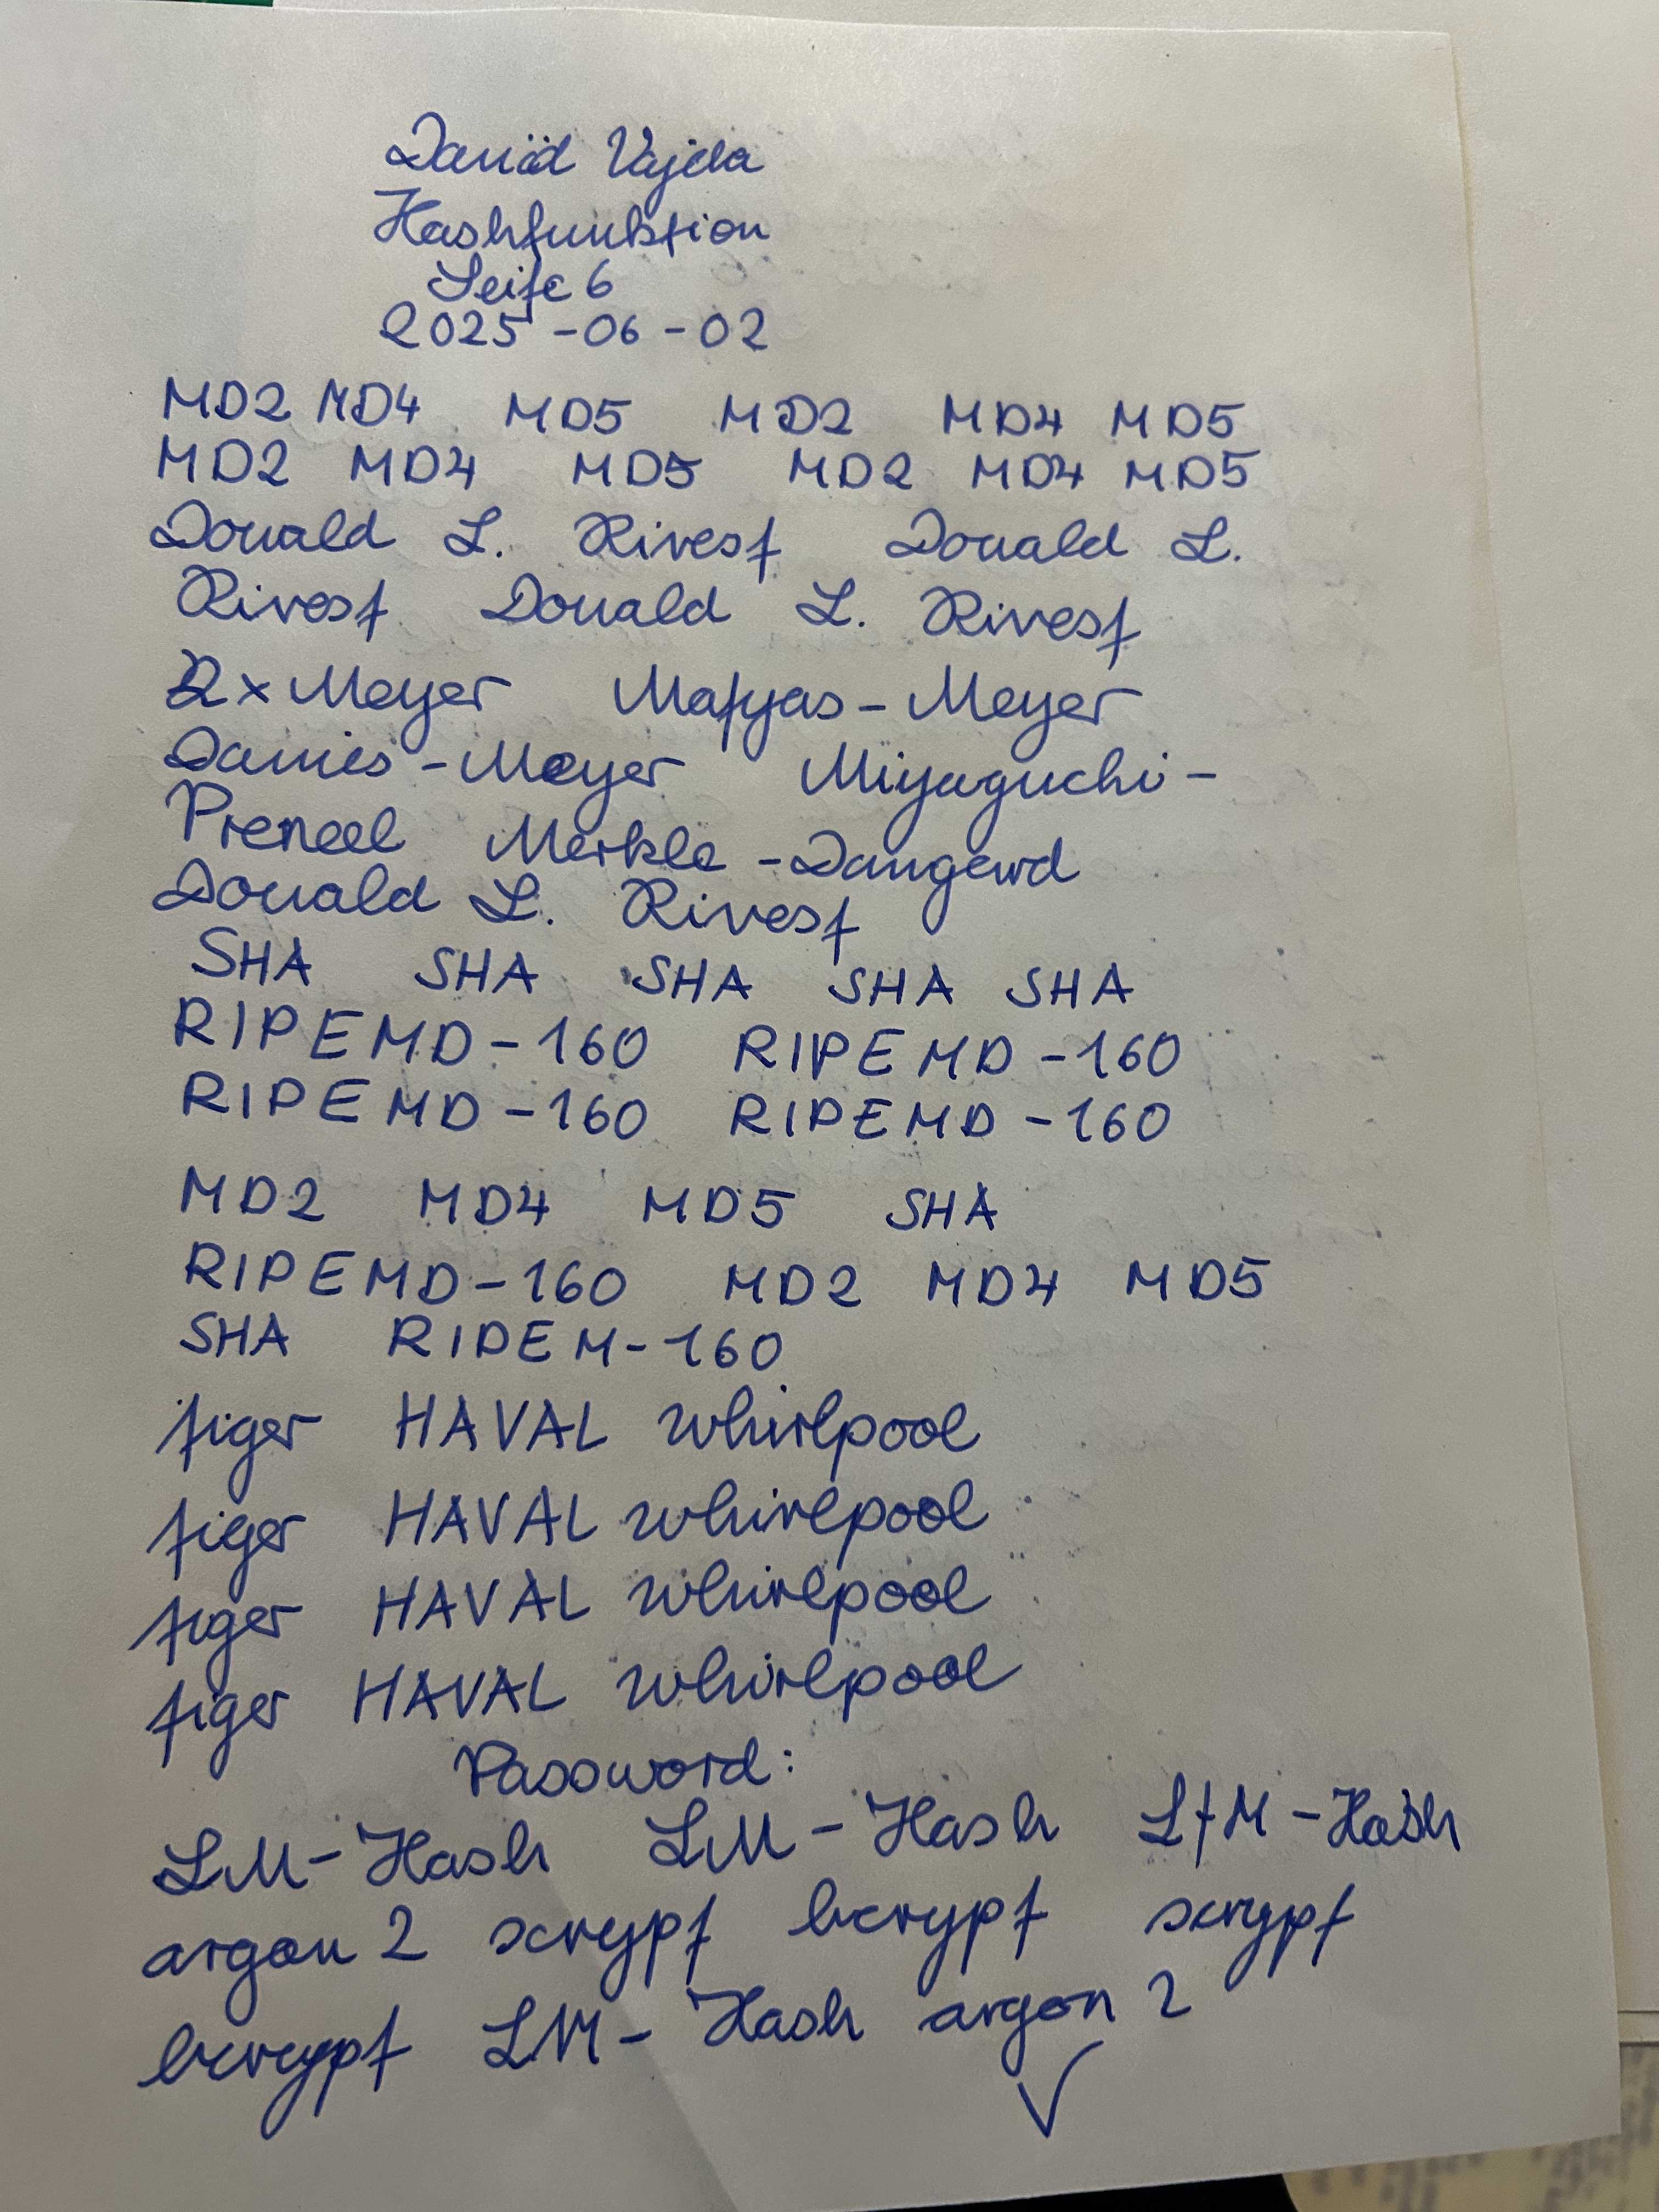 David Vajda
Hashfunktion
Seite 6
2025-06-02
MD2 MD4 MD5 MD2 MD4 MD5
MD2 MD4 MD5 MD2 MD4 MD5
Donald L. Rivest Donald L.
Rivest Donald L. Rivest
2x Meyer Matyas-Meyer
Davies-Meyer Miyaguchi-
Preneel Merkle-Damgewd
Donald L. Rivest
SHA SHA SHA SHA SHA
RIPEMD-160 RIPEMD-160
RIPEMD-160 RIPEMD-160
MD2 MD4 MD5 SHA
RIPEMD-160 MD2 MD4 MD5
SHA RIPEM-160
tiger HAVAL whirlpool
tiger HAVAL whirlpool
tiger HAVAL whirlpool
tiger HAVAL whirlpool
Password:
LM-Hash LM-Hash LM-Hash
argon 2 scrypt bcrypt scrypt
bcrypt LM-Hash argon 2